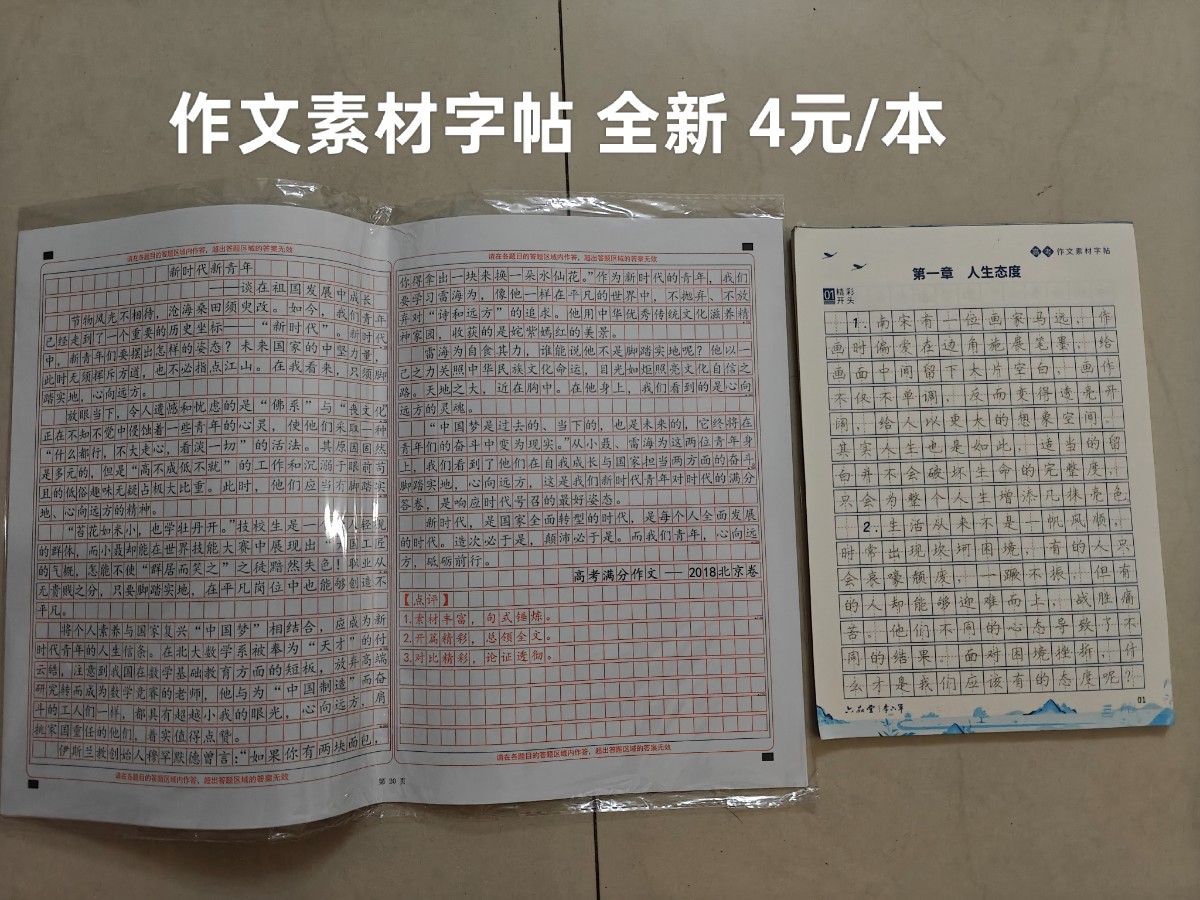 作文素材字帖 全新 4元/本
请在各题目的答题区域内作答，超出答题区域的答案无效
新时代新青年
——谈在祖国发展中成长
节物风光不相待，沧海桑田须臾改。如今，我们青年
已经走到了一个重要的历史坐标——“新时代”。新时代
中，新青年们要摆出怎样的姿态？未来国家的中坚力量，
此时无须挥斥方遒，也不必指点江山。在我看来，只须脚
踏实地，心向远方。
放眼当下，令人遗憾和忧虑的是“佛系”与“丧文化”
正在不知不觉中侵蚀着一些青年的心灵，使他们采取一种
“什么都行，不大走心，看淡一切”的活法。其原因固然
是多元的，但是“高不成低不就”的工作和沉溺于眼前苟
且的低俗趣味无疑占极大比重。此时，他们应当有脚踏实
地、心向远方的精神。
“苔花如米小，也学牡丹开。”技校生是一个人轻视
的群体，而小聂却能在世界技能大赛中展现出国工匠
的气概，怎能不使“群居而笑之”之徒黯然失色！职业从
无贵贱之分，只要脚踏实地，在平凡岗位中也能够创造不
平凡。
将个人素养与国家复兴“中国梦”相结合，应成为新
时代青年的人生信条。在北大数学系被奉为“天才”的付
云皓，注意到我国在数学基础教育方面的短板，放弃高端
研究转而成为数学竞赛的老师，他与为“中国制造”而奋
斗的工人们一样，都具有超越小我的眼光，心向远方，肩
挑家国重任的他们，着实值得点赞。
伊斯兰教创始人穆罕默德曾言：“如果你有两块面包，
请在各题目的答题区域内作答，超出答题区域的答案无效
第 20 页
请在各题目的答题区域内作答，超出答题区域的答案无效
你得拿出一块来换一朵水仙花。”作为新时代的青年，我们
要学习雷海为，像他一样在平凡的世界中，不抛弃、不放
弃对“诗和远方”的追求。他用中华优秀传统文化滋养精
神家园，收获的是姹紫嫣红的美景。
雷海为自食其力，谁能说他不是脚踏实地呢？他以一
己之力关照中华民族文化命运，目光如炬照亮文化自信之
路。天地之大，近在胸中。在他身上，我们看到的是心向
远方的灵魂。
“中国梦是过去的、当下的，也是未来的，它终将在
青年们的奋斗中变为现实。”从小聂、雷海为这两位青年身
上，我们看到了他们在自我成长与国家担当两方面的奋斗。
脚踏实地，心向远方，这是我们新时代青年对时代的满分
答卷，是响应时代号召的最好姿态。
新时代，是国家全面转型的时代，是每个人全面发展
的时代。造次必于是，颠沛必于是。而我们青年，心向远
方，砥砺前行。
高考满分作文 — 2018北京卷
【点评】
1.素材丰富，句式锤炼。
2.开篇精彩，总领全文。
3.对比精彩，论证透彻。
请在各题目的答题区域内作答，超出答题区域的答案无效
高考 作文素材字帖
第一章 人生态度
01 精彩开头
1.南宋有一位画家马远，作
画时偏爱在边角施展笔墨，给
画面中间留下大片空白，画作
不仅不单调，反而变得透亮开
阔，给人以更大的想象空间。
其实人生也是如此，适当的留
白并不会破坏生命的完整度，
只会为整个人生增添几抹亮色。
2.生活从来不是一帆风顺，
时常出现坎坷困境，有的人只
会哀嚎颓废，一蹶不振，但有
的人却能够迎难而上，战胜痛
苦。他们不同的心态导致了不
同的结果。面对困境挫折，什
么才是我们应该有的态度呢？
六品堂 李六军
01